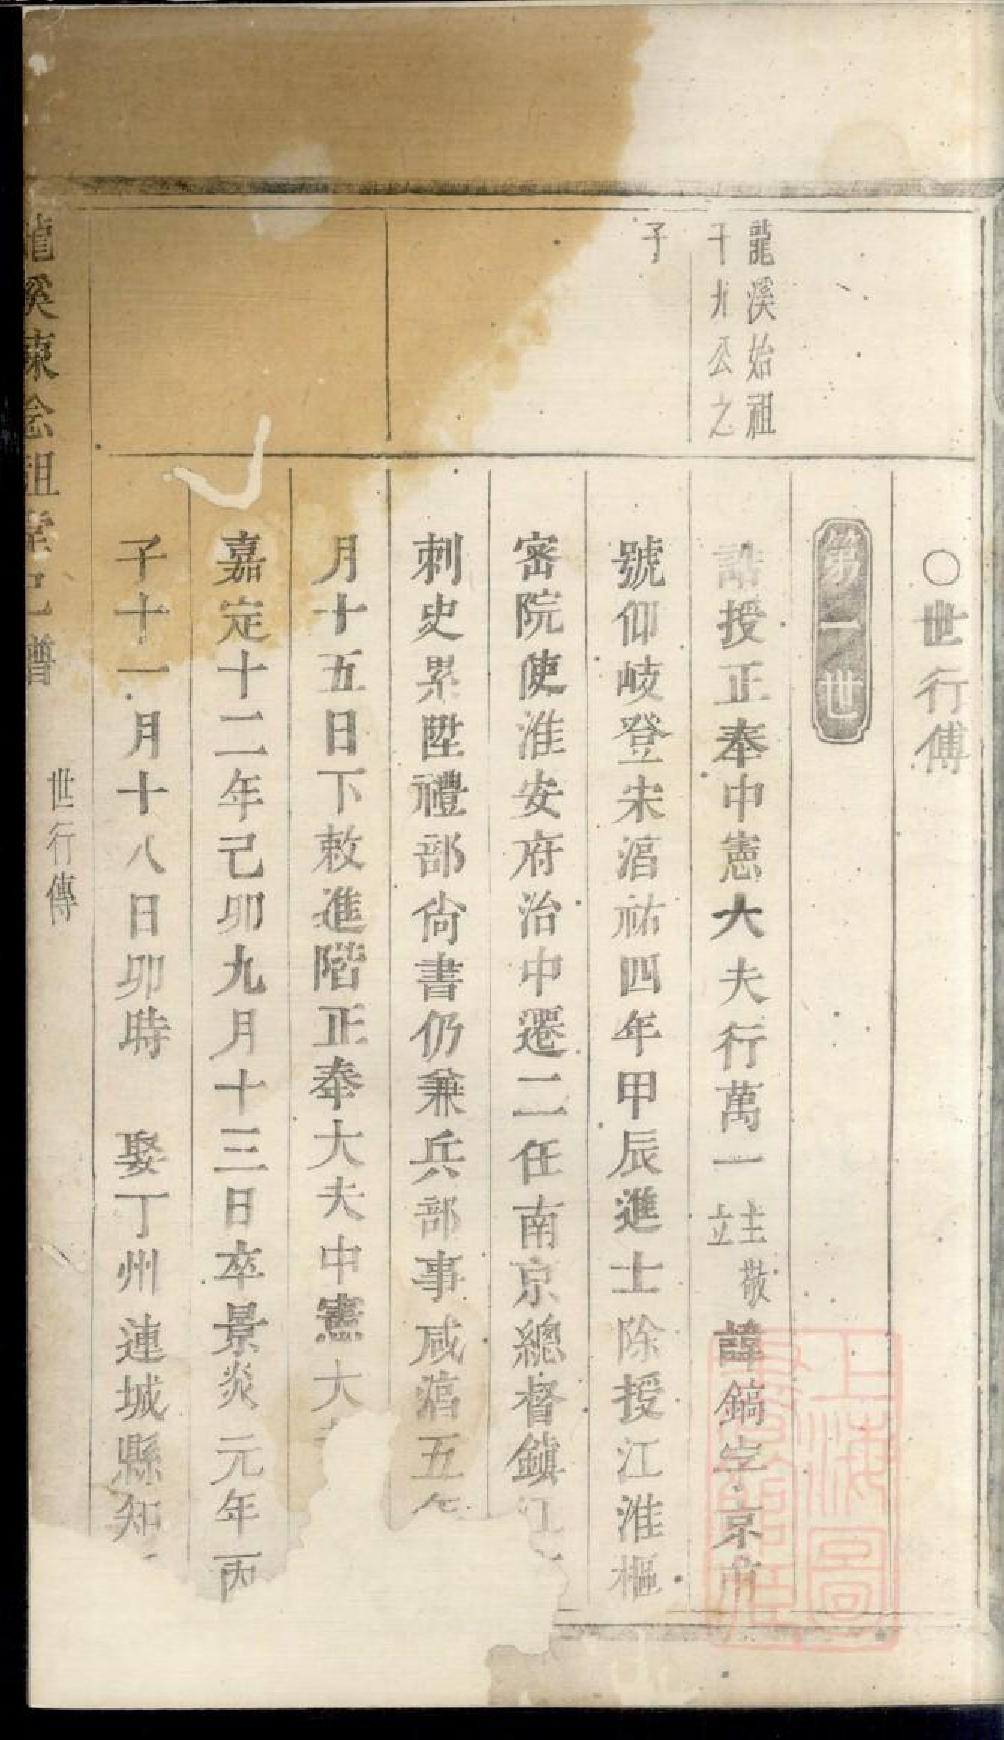 ○世行傅
第一世
龍溪始祖
千九公之
子
誥授正奉中憲大夫行萬一主敬立諱鎬字京甫
號仰岐登宋湻祐四年甲辰進士除授江淮樞
密院使淮安府治中遷二任南京總督鎮江
刺史累陞禮部尙書仍兼兵部事咸湻五年
月十五日下敕進階正奉大夫中憲大
嘉定十二年己卯九月十三日卒景炎元年丙
子十一月十八日卯時　娶丁州連城縣知
龍溪陳念祖堂七譜
世行傳
上海圖